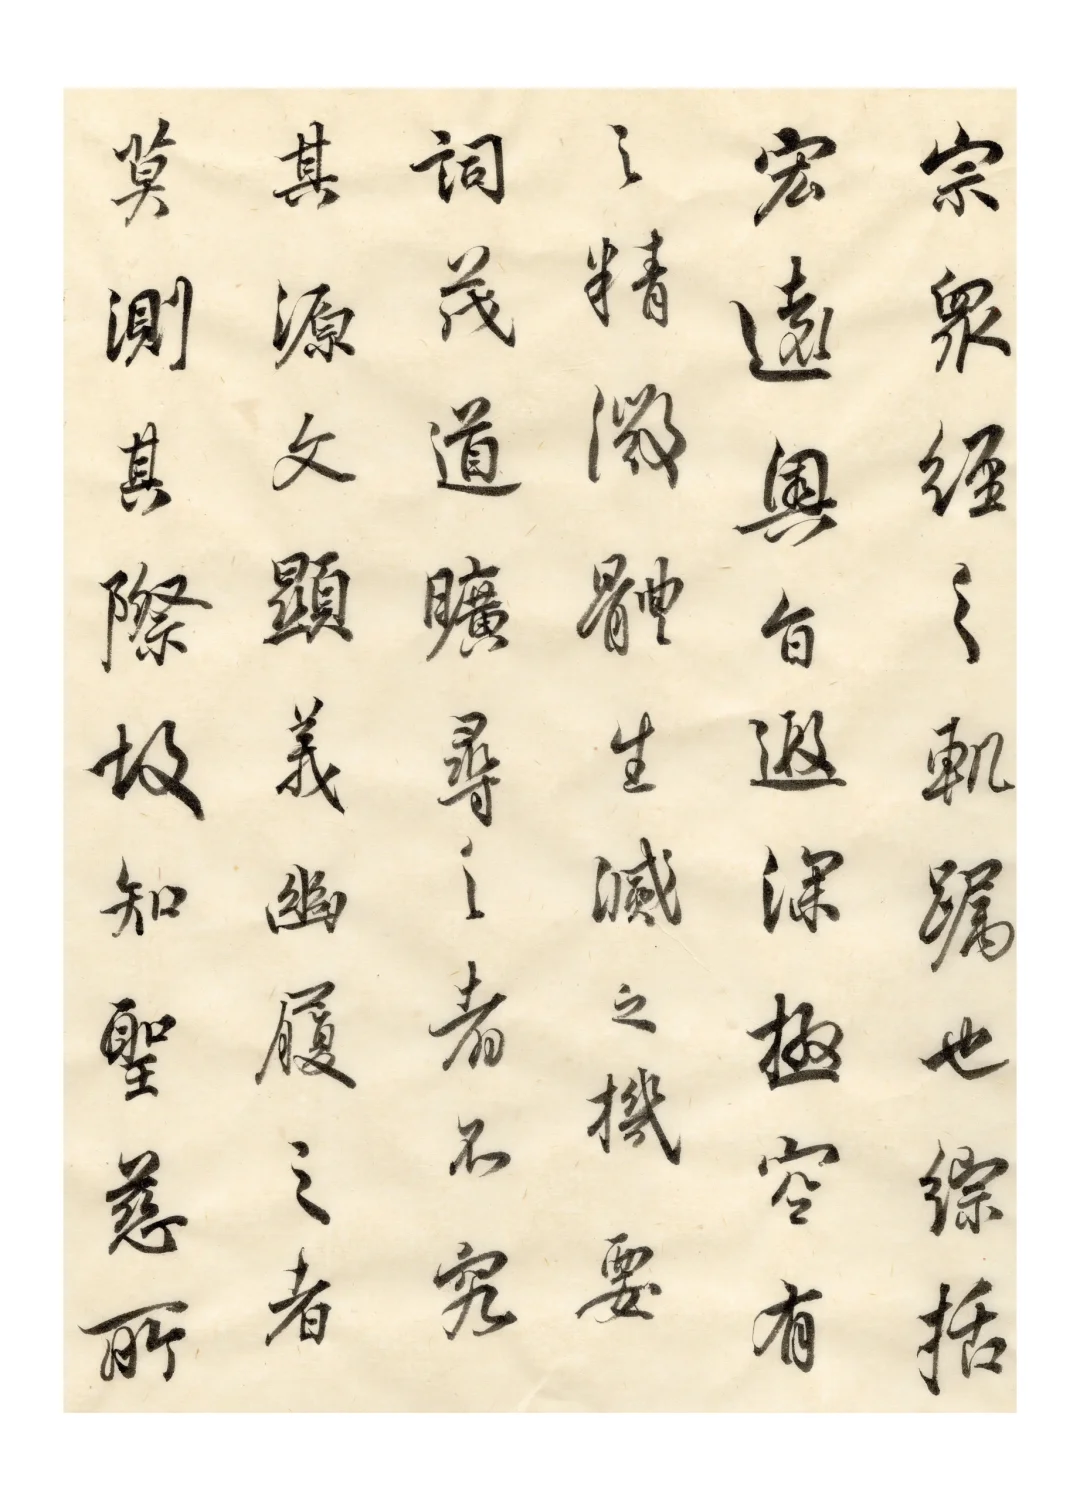 宗眾經之軌躅也綜括
宏遠奧旨遐深極空有
之精微體生滅之機要
詞茂道曠尋之者不究
其源文顯義幽履之者
莫測其際故知聖慈所